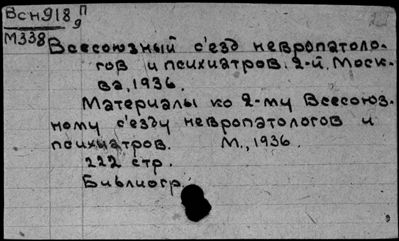 Всн918 П
9
М338
Всесоюзный с'езд невропатоло-
гов и психиатров. 2-й. Моск-
ва, 1936.
Материалы ко 2-му Всесоюз-
ному с'езду невропатологов и
психиатров. М., 1936.
222 стр.
Библиогр.